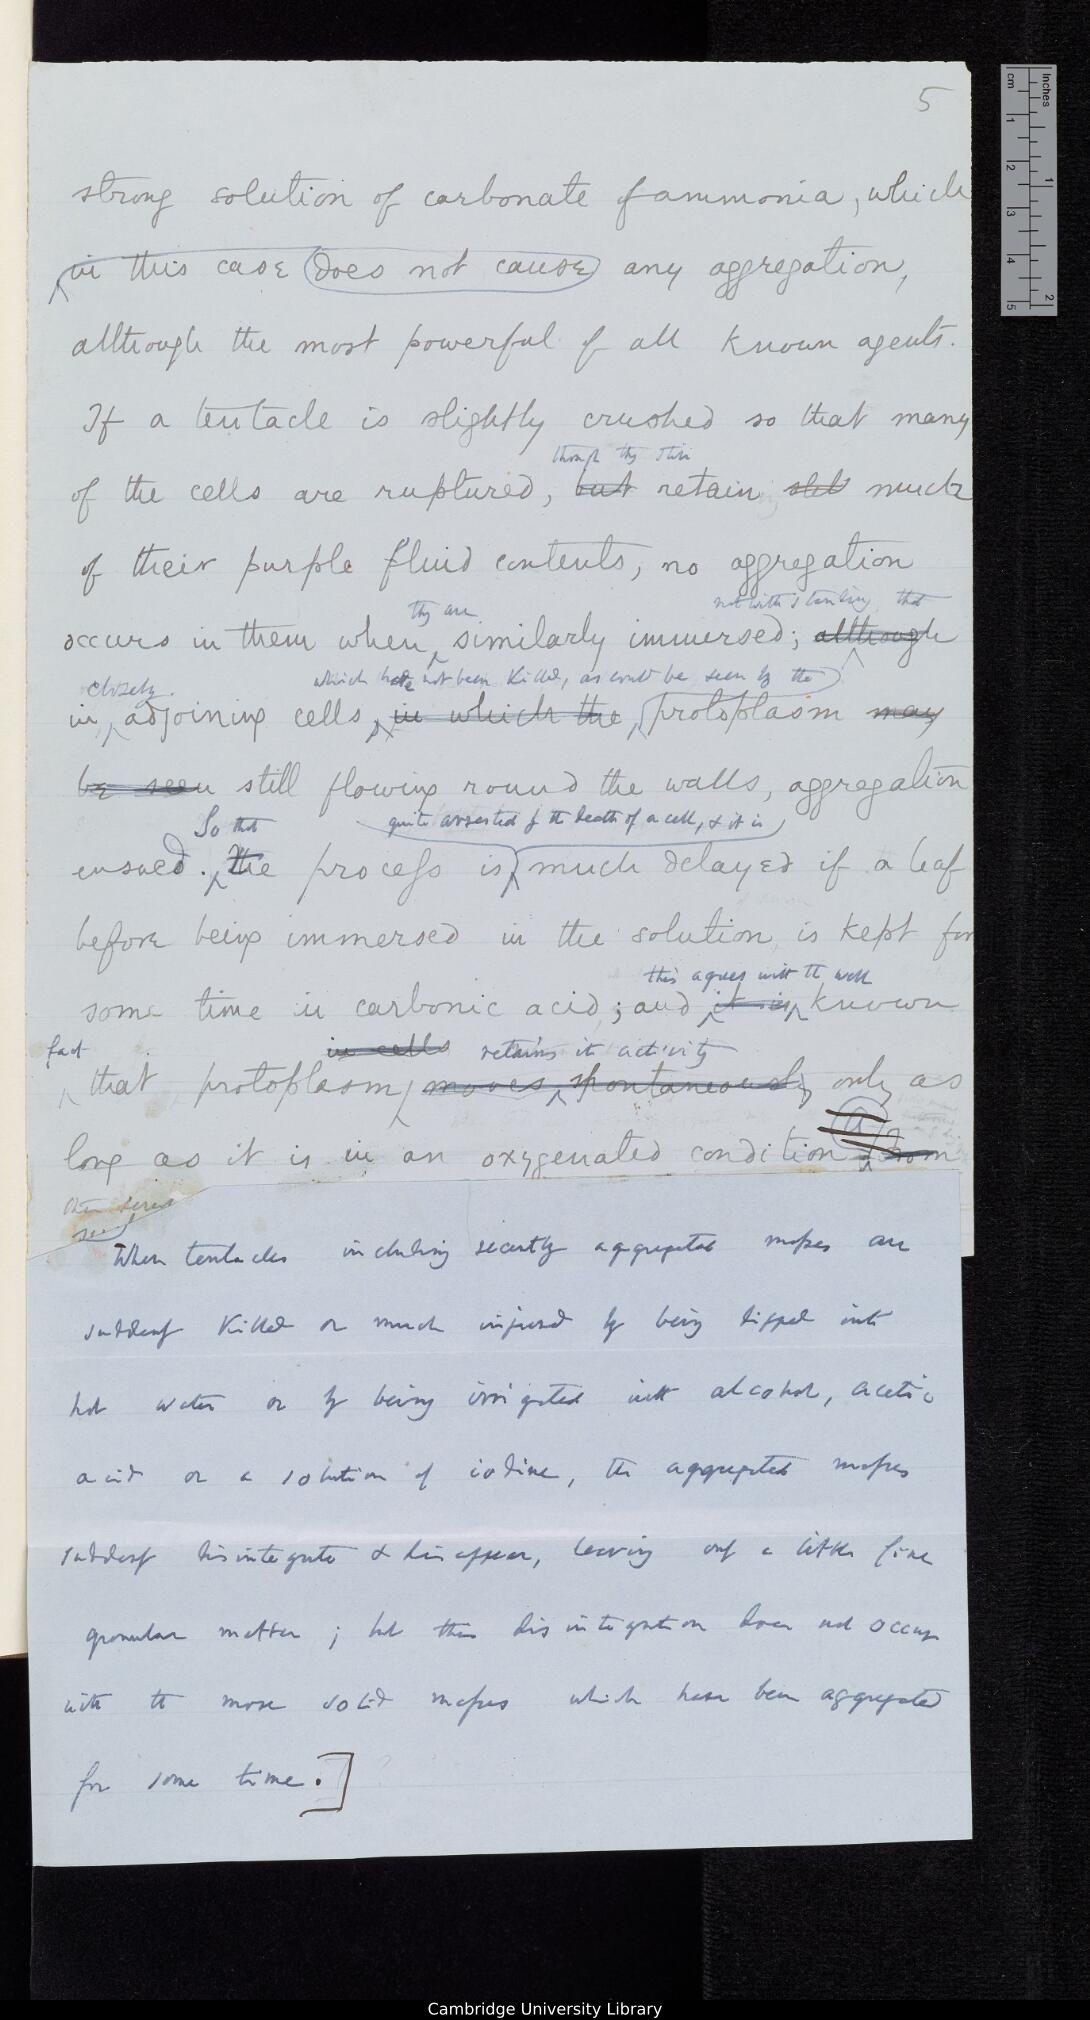 5
strong solution of carbonate of ammonia, which
in this case does not cause any aggregation,
although the most powerful of all known agents.
If a tentacle is slightly crushed so that many
though they still
of the cells are ruptured, but retain still much
of their purple fluid contents, no aggregation
they are notwithstanding that
occurs in them when similarly immersed; although
closely which have not been killed, as could be seen by the
in adjoining cells, in which the protoplasm may
be seen still flowing round the walls, aggregation
So that quite arrested by the death of a cell, & it is
ensued. The process is much delayed if a leaf
before being immersed in the solution is kept for
some time in carbonic acid; and it is known
this agrees with the well
fact in cells retains its activity
that protoplasm moves spontaneously only as
long as it is in an oxygenated condition
(a)
When tentacles including recently aggregated masses are
suddenly killed or much injured by being dipped into
hot water or by being irrigated with alcohol, acetic
acid or a solution of iodine, the aggregated masses
suddenly disintegrate & disappear, leaving only a little fine
granular matter; but this disintegration does not occur
with the more solid masses which have been aggregated
for some time.]
cm
Inches
1
2
3
4
5
1
2
Cambridge University Library